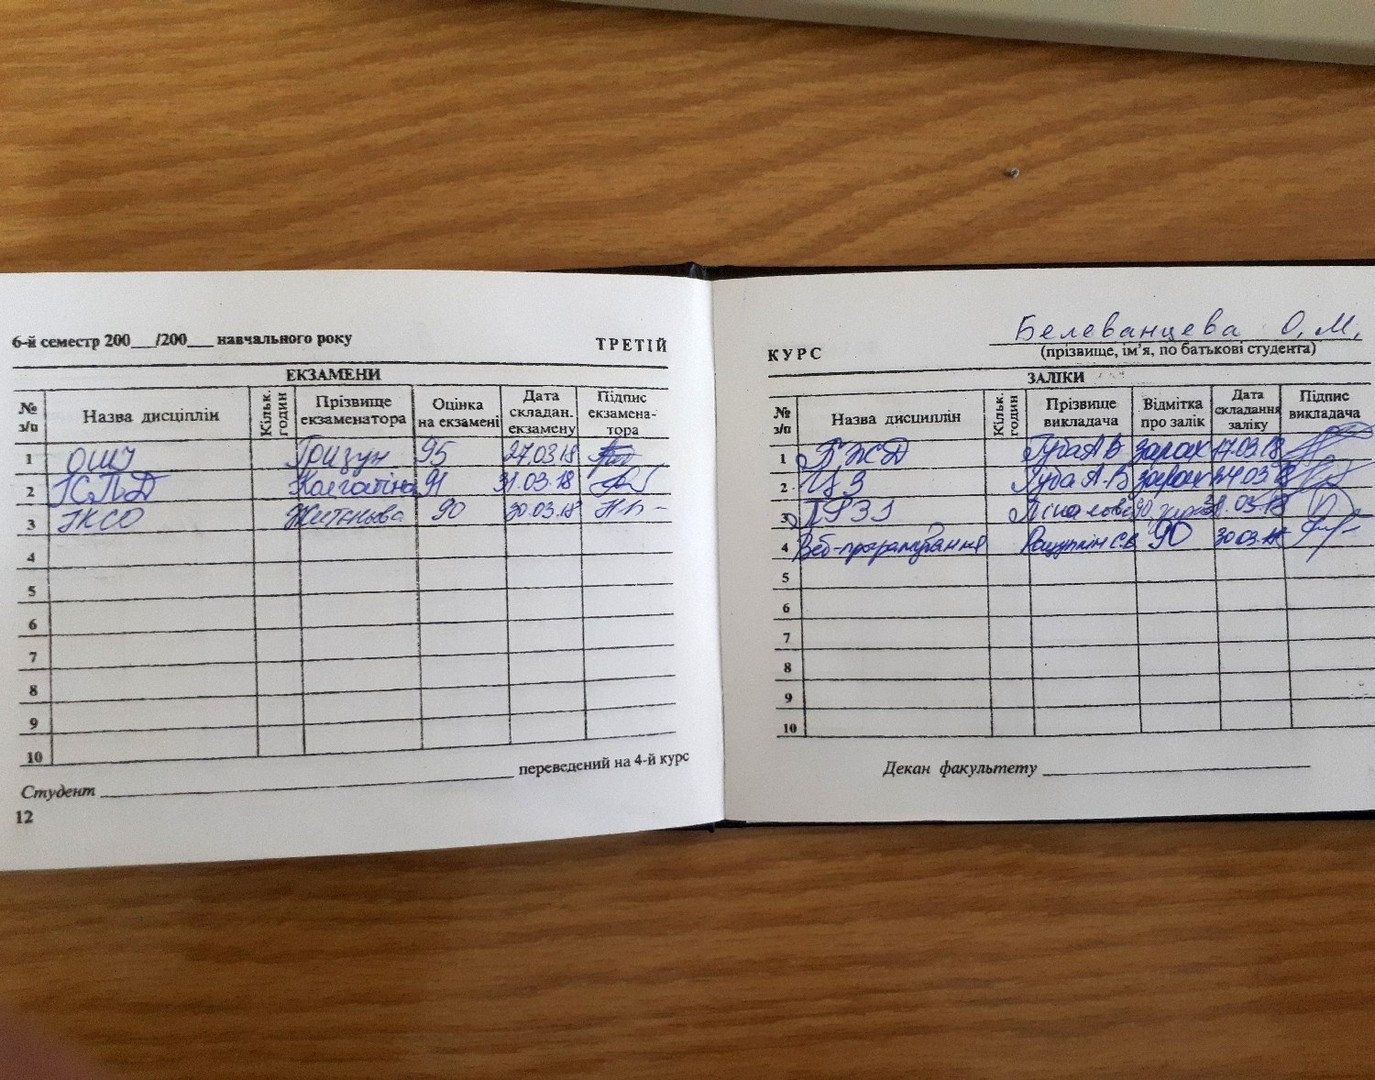 6-й семестр 200___/200___ навчального року ТРЕТІЙ
ЕКЗАМЕНИ
№ з/п Назва дисціплін Кільк. годин Прізвище екзаменатора Оцінка на екзамені Дата складан. екзамену Підпис екзамена-тора
1 ОШІ Гризун 95 27.03.18
2 ІСПД Колгатіна 91 31.03.18
3 ІКСО Житєньова 90 30.03.18
4
5
6
7
8
9
10
Студент ___ переведений на 4-й курс
12
Белеванцева О.М.
КУРС (прізвище, ім'я, по батькові студента)
ЗАЛІКИ
№ з/п Назва дисциплін Кільк. годин Прізвище викладача Відмітка про залік Дата складання заліку Підпис викладача
1 БЖД Губа А В зарах 17.03.18
2 ЦЗ Губа А.В зарах 24.03.18
3 90 .03.18
4 Веб-програмування 90 30.03.18
5
6
7
8
9
10
Декан факультету ___